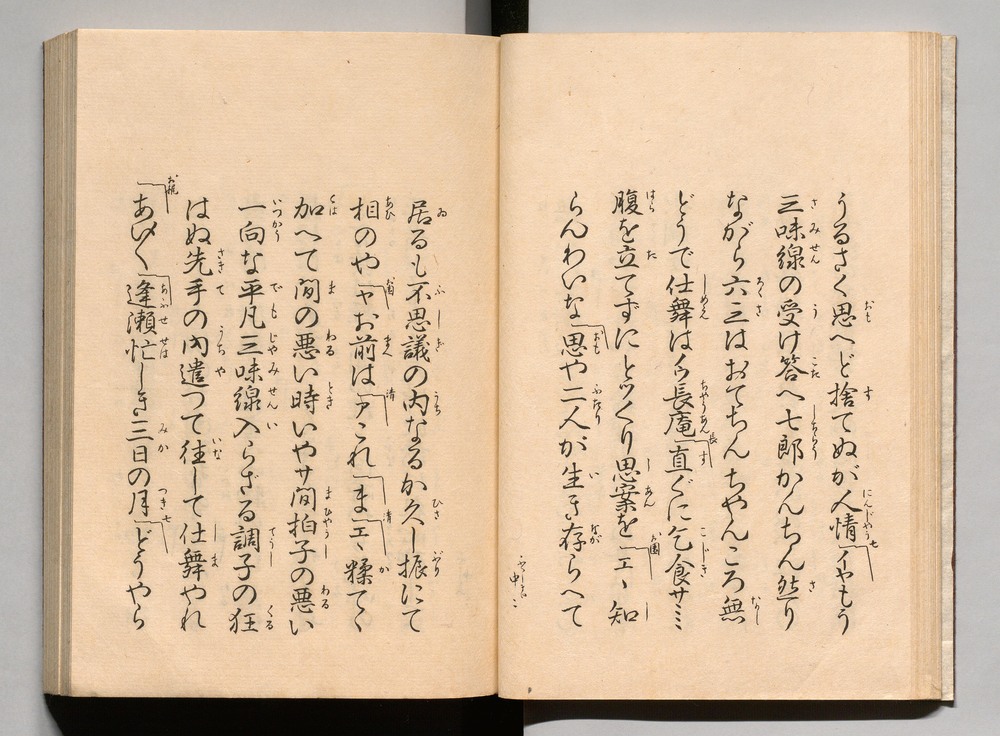 うるさく思へど捨てぬが人情イやもう
三味線の受け答へ七郎かんちん然り
ながら六三はおてちんちやんころ無
どうで仕舞は長庵直ぐに乞食サミミ
腹を立てずにとツくり思案をエヽ知
らんわいな思や二人が生き存らへて
居るも不思議の内なるか久し振にて
相のややお前はアこれまエヽ糅てゝ
加へて間の悪い時いやサ間拍子の悪い
一向な平凡三味線入らざる調子の狂
はぬ先手の内遣つて往して仕舞やれ
あい〳〵逢瀬忙しき三日の月どうやら